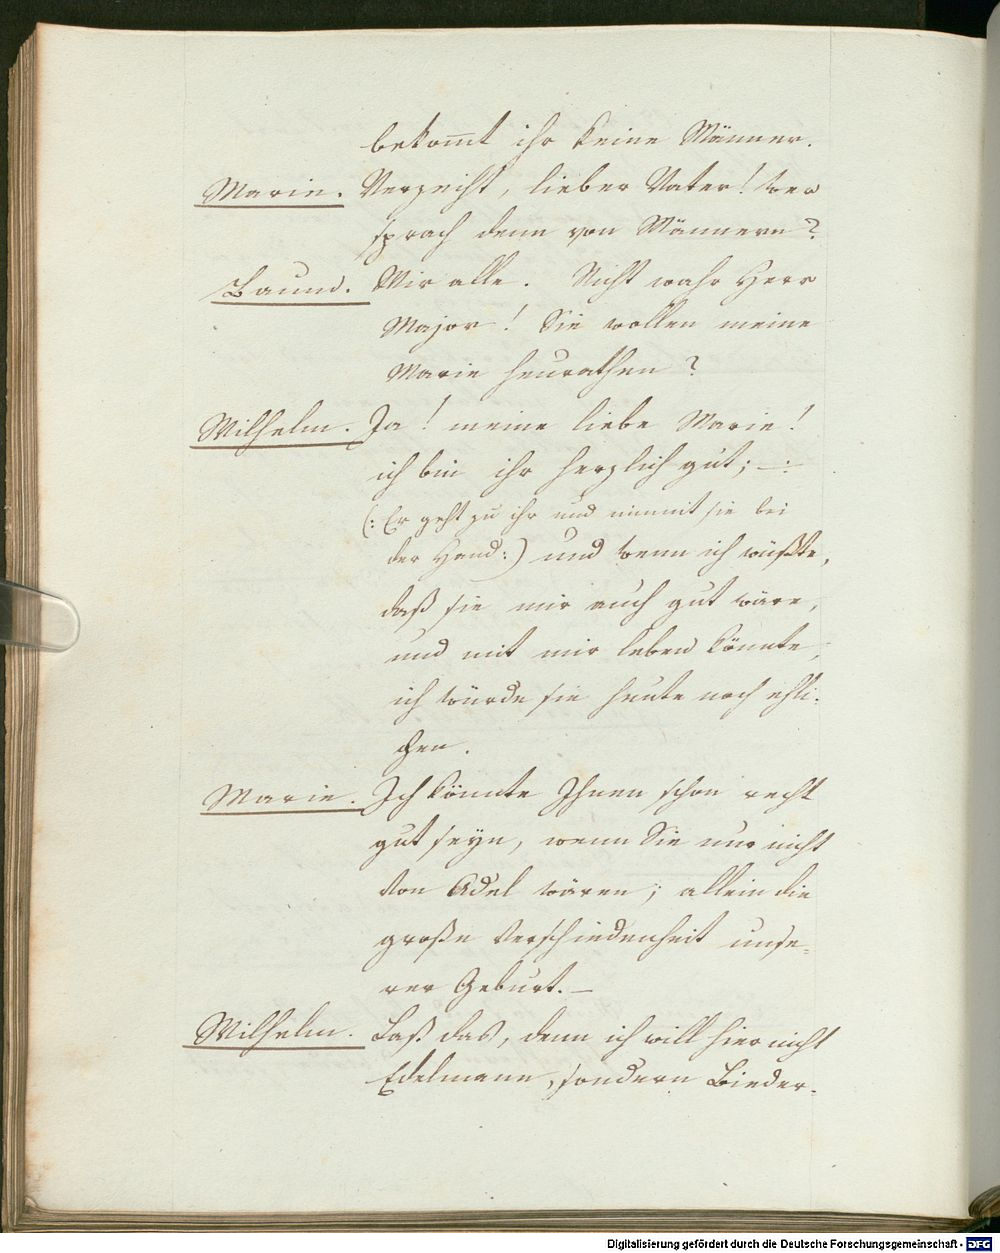 bekom̄t ihr keine Männer.
Marie. Verzeiht, lieber Vater! wer
sprach denn von Männern?
Baum. Wir alle. Nicht wahr Herr
Major! Sie wollen meine
Marie heurathen?
Wilhelm. Ja! meine liebe Marie!
ich bin ihr herzlich gut; —:
(: Er geht zu ihr und nimmt sie bei
der Hand:) und wenn ich wüßte,
daß sie mir auch gut wäre,
und mit mir leben könnte,
ich würde sie heute noch ehli-
chen.
Marie. Ich könnte Ihnen schon recht
gut seyn, wenn Sie nur nicht
von Adel wären; allein die
große Verschiedenheit unse-
rer Geburt. —
Wilhelm. Laß das, denn ich will hier nicht
Edelmann, sondern Bieder-
Digitalisierung gefördert durch die Deutsche Forschungsgemeinschaft - DFG